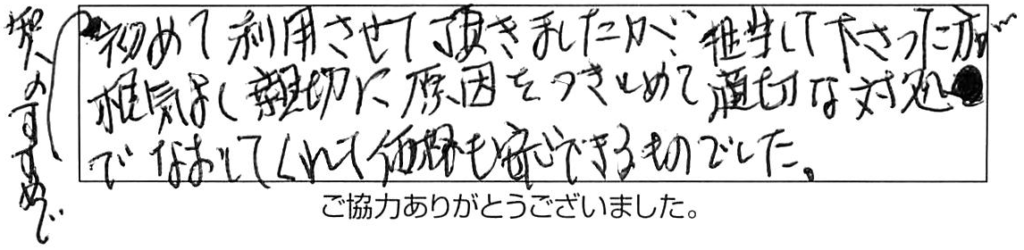 知人のすすめで
初めて利用させて頂きましたが、担当して下さった方が
根気よく親切に原因をつきとめて適切な対処
でなおしてくれて価格も安心できるものでした。
ご協力ありがとうございました。